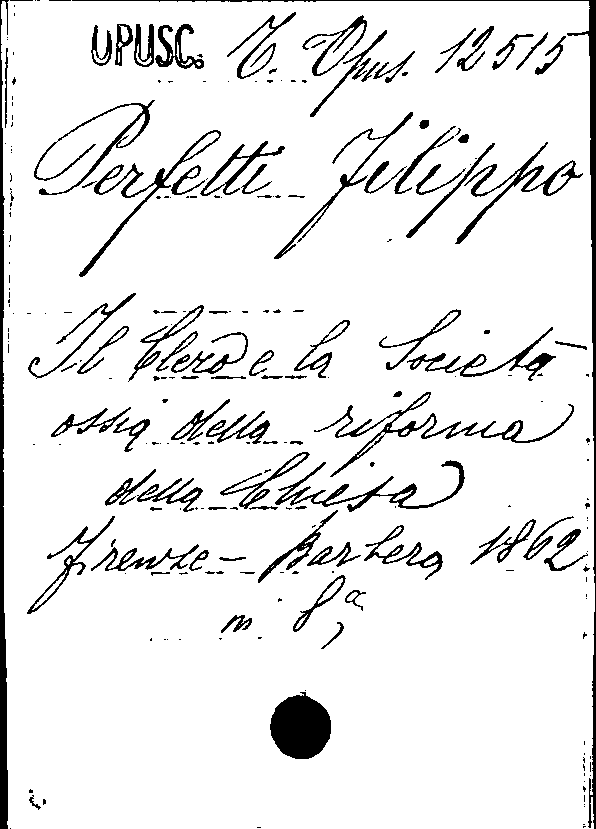 OPUSC. T. Opus. 12515
Perfetti Filippo
Il Clero e la Società
ossia della riforma
della Chiesa
Firenze - Barbera 1862
in 8ª